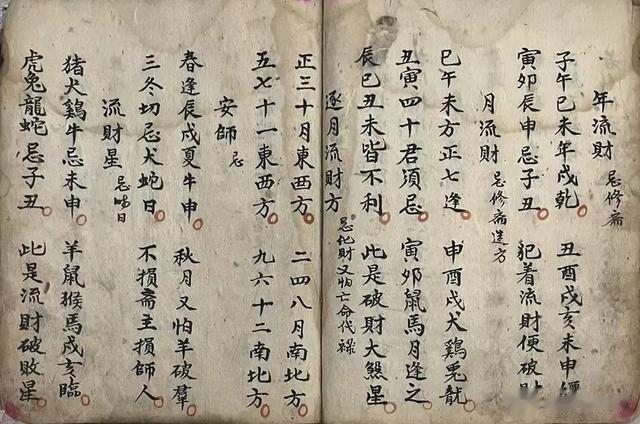 年流財 忌修齋
子午巳未年戌乾 丑酉戌亥未申
寅卯辰申忌子丑 犯着流財便破
月流財 忌修齋方
巳午未方正七逢 申酉戌犬鷄兎龍
丑寅四十君須忌 寅卯鼠馬月逢之
辰巳丑未皆不利 此是破財大煞星
逐月流財方 忌化財又怕亡命代祿
正三十月東西方 二四八月南北方
五七十一東西方 九六十二南北方
安師 忌
春逢辰戌夏牛申 秋月又怕羊破羣
三冬切忌犬蛇日 不損斋主損師人
流財星 忌日
猪犬鷄牛忌未申 羊鼠猴馬戌亥臨
虎兔龍蛇忌子丑 此是流財破敗星